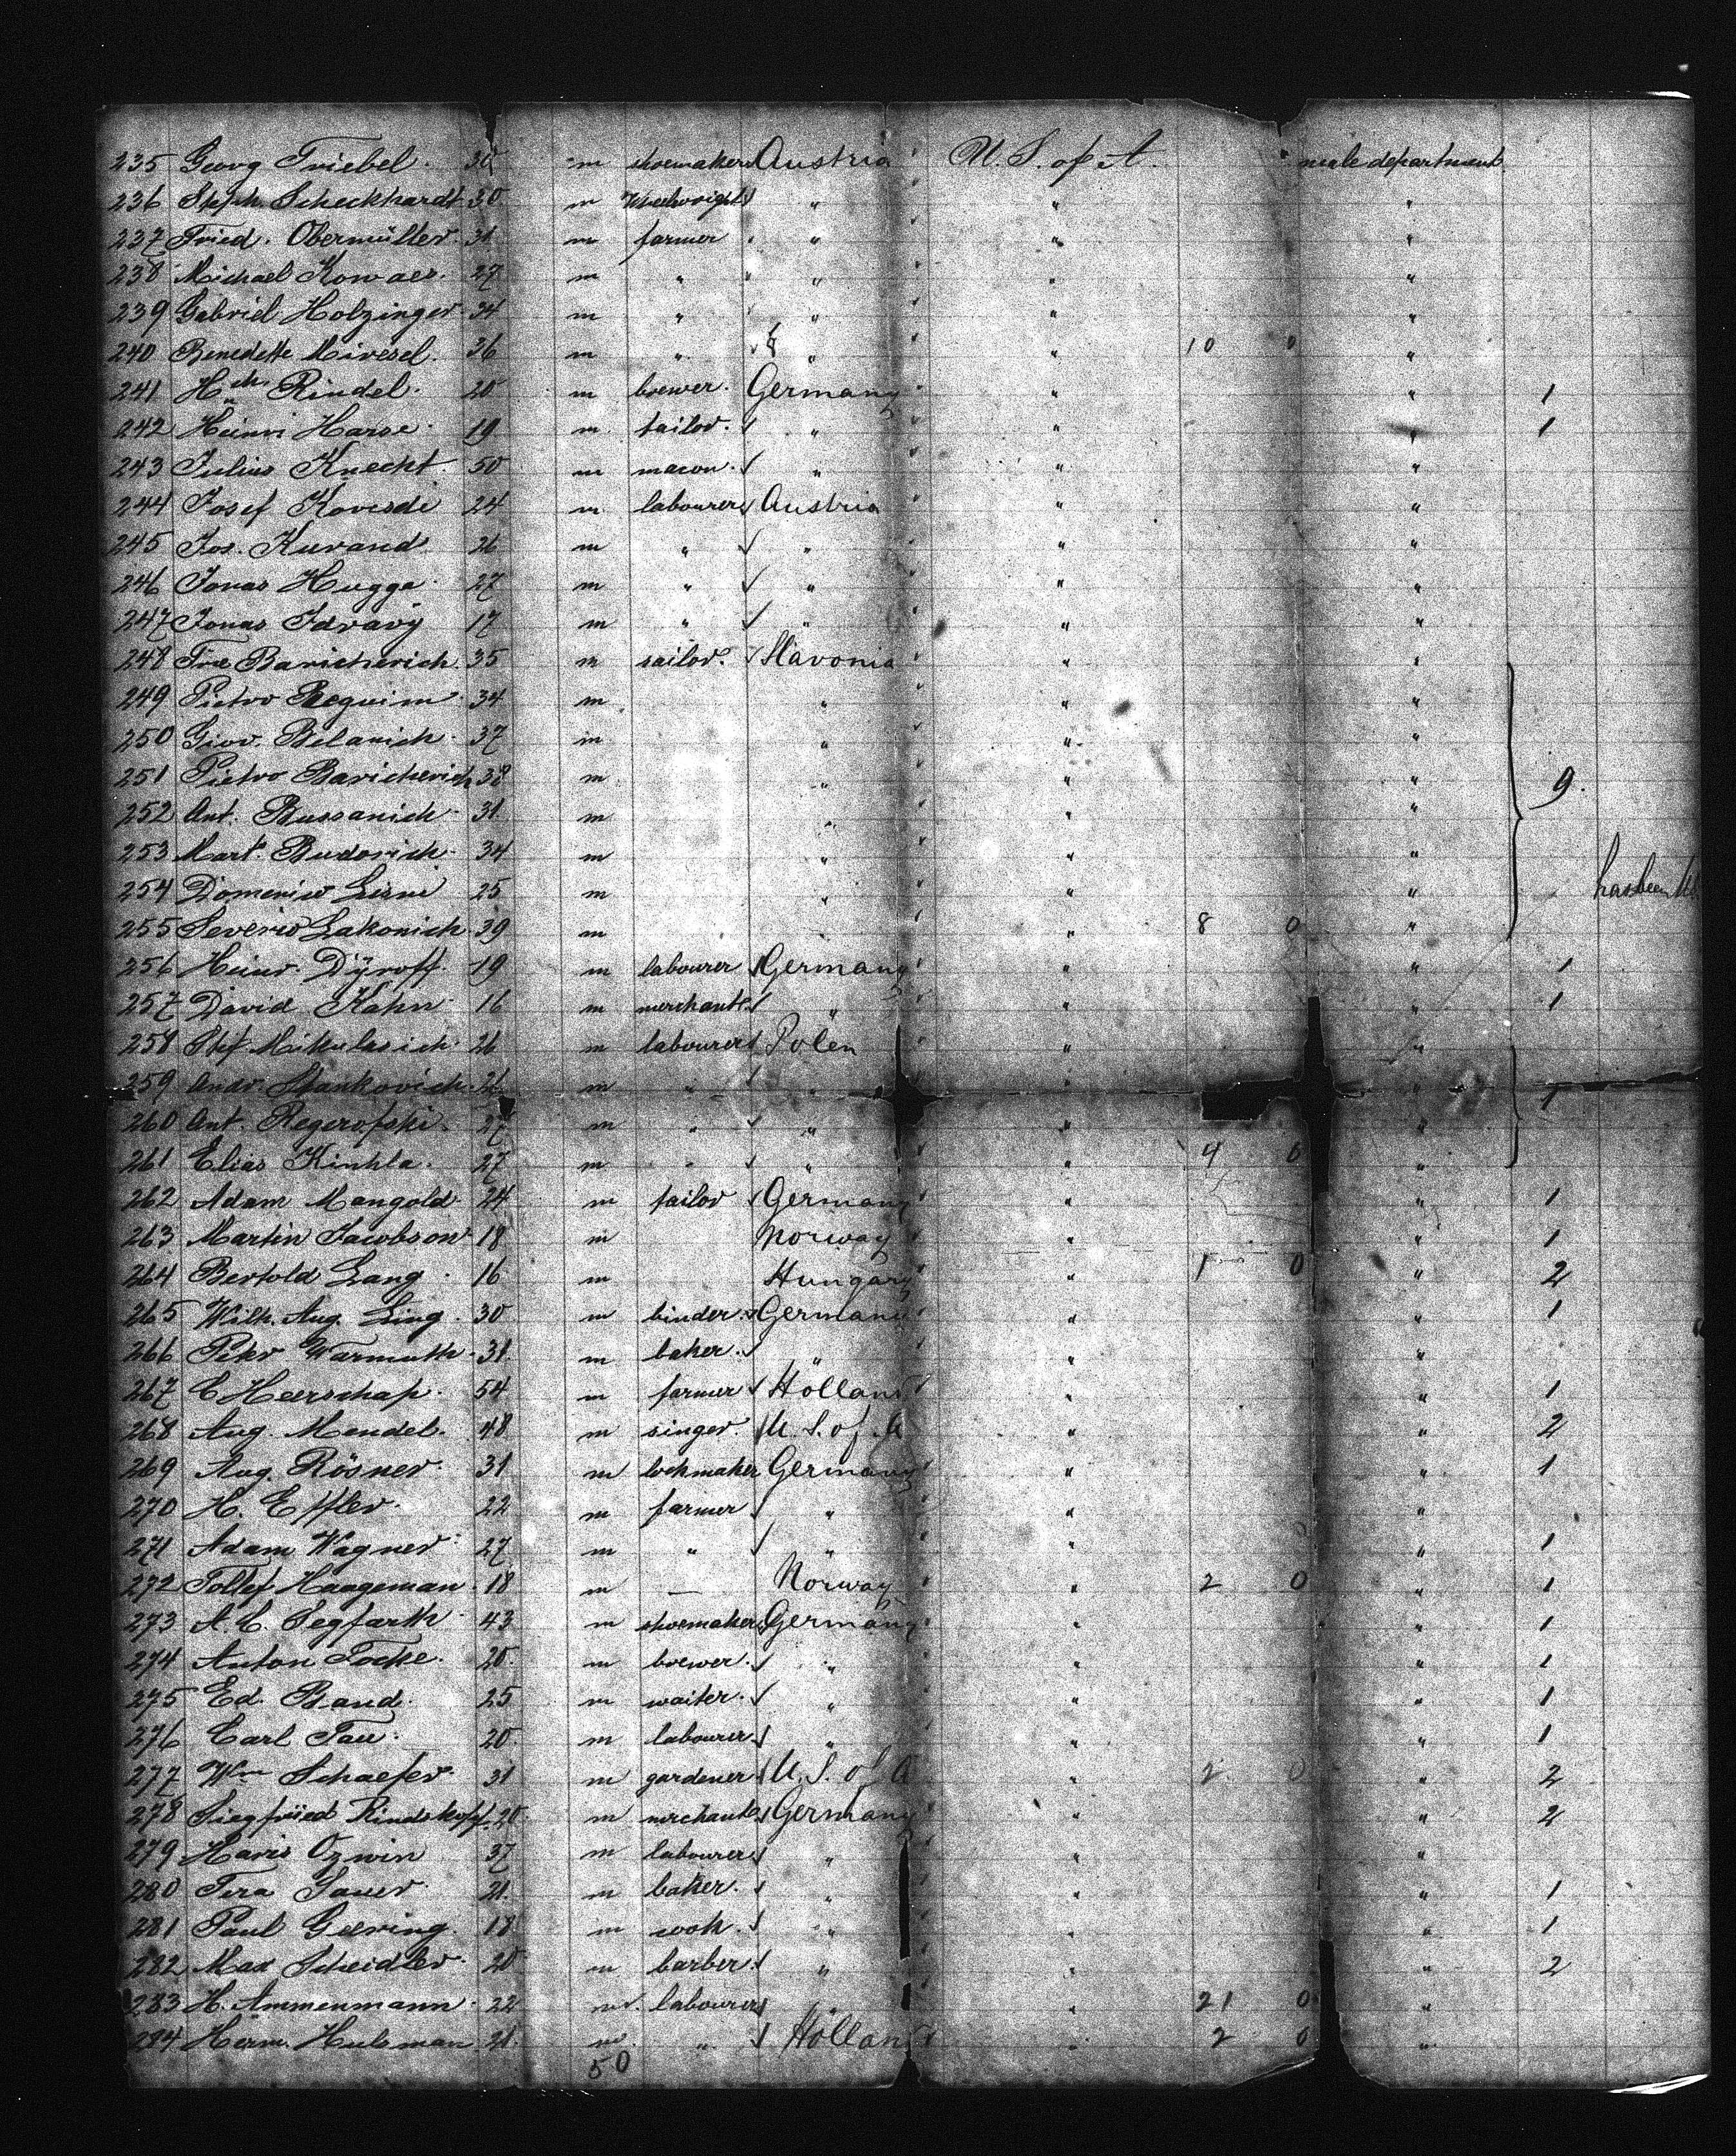 235 Georg Triebel. 30 m shoemaker Austria U. S. of A. male department
236 Steph. Scheckhardt 30 m Wheelwright " " "
237 Fried. Obermüller 31 m farmer " " "
238 Michael 27 m " " " "
239 Gabriel Holzinger 34 m " " " "
240 Benedette 36 m " " " 10 0 "
241 Hch. Rindel. 20 m brewer. Germany " " 1
242 Heinri Harse 19 m tailor. " " " 1
243 Julius Knecht 50 m mason. " " "
244 Josef 24 m labourer Austria " "
245 Jos. Kurand 26 m " " " "
246 Jonas Hugga 27 m " " " "
247 Jonas 17 m " " " "
248 Baricherich 35 m sailor. Slavonia " "
249 Pietro 34 m " " "
250 Giov. Belanich 37 m " " "
251 Pietro Baricherich 38 m " " " 9.
252 Ant. Bussanich 31 m " " "
253 Mart. 34 m " " "
254 25 m " " " has been
255 Severio Lakonich 39 m " " 8 0 "
256 Heinr. Dÿroff. 19 m labourer Germany " " 1
257 David Kahn 16 m merchant " " " 1
258 Stef Mikulasich 26 m labourer Polen " "
259 Andr. Stankovich m " " " " 1
260 Ant. Regerofski. 27 m " " " "
261 Elias Kinhla. 27 m " " " 4 0 "
262 Adam Mangold 24 m tailor Germany " " 1
263 Martin Jacobson 18 m Norway " " 1
264 Bertold Lang 16 m Hungary " 1 0 " 2
265 Wilh. Aug. Ling. 30 m binder. Germany " " 1
266 Peter Warmuth 31 m baker. " " "
267 C Heerschap. 54 m farmer Holland " " 1
268 Aug. Mendel. 48 m singer. U. S. of A " " 2
269 Aug. Rösner 31 m lockmaker Germany " " 1
270 H. 22 m farmer " " "
271 Adam Wagner 27 m " " " " 1
272 Haageman 18 m — Norway " 2 0 " 1
273 A. C. Segfarth 43 m shoemaker Germany " " 1
274 Anton 20. m brewer. " " " 1
275 Ed. Band. 25 m waiter. " " " 1
276 Carl 20. m labourer " " " 1
277 Wm Schaefer 31 m gardener U. S. of A " 2 0 " 2
278 Siegfried Rindskopf. 20. m merchant Germany " " 2
279 Haris Ozwin 37 m labourer " " "
280 Sauer 21. m baker. " " " 1
281 Paul Geering. 18 m cook. " " " 1
282 Max Scheidler 20 m barber " " " 2
283 H. Ammenmann 22 m. labourer " " 21 0 "
284 Herm. Hulsman 21. m " Holland " 2 0 "
50